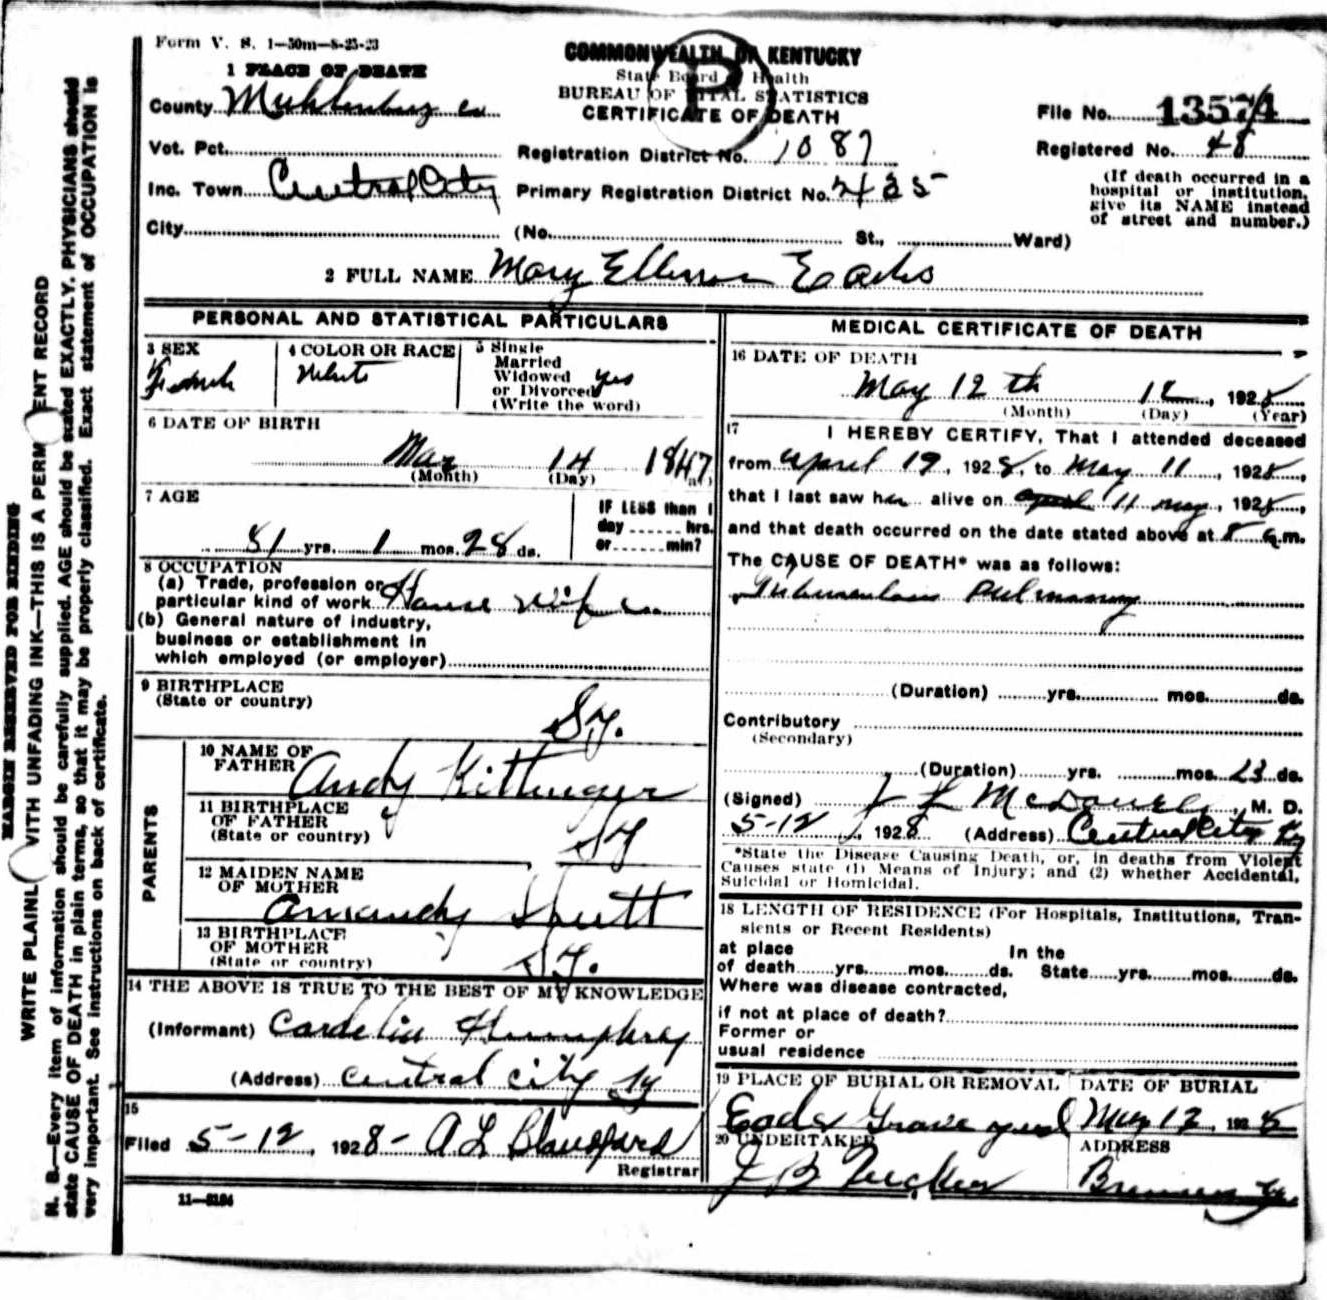 Form V. S. 1—50m—8-25-23
COMMONWEALTH OF KENTUCKY
State Board of Health
BUREAU OF VITAL STATISTICS
CERTIFICATE OF DEATH
1 PLACE OF DEATH
County Muhlenburg Co
File No. 13574
Vot. Pct.
Registration District No. 1087
Registered No. 48
Inc. Town Central City
Primary Registration District No. 2435
(If death occurred in a
hospital or institution,
give its NAME instead
of street and number.)
City
(No. St., Ward)
2 FULL NAME Mary Ellen Eades
PERSONAL AND STATISTICAL PARTICULARS
3 SEX
Female
4 COLOR OR RACE
White
5 Single
Married
Widowed yes
or Divorced
(Write the word)
6 DATE OF BIRTH
Mar 14 1847
(Month) (Day)
7 AGE
81 yrs. 1 mos. 28 ds.
IF LESS than 1
day hrs.
or min?
8 OCCUPATION
(a) Trade, profession or
particular kind of work House wife
(b) General nature of industry,
business or establishment in
which employed (or employer)
9 BIRTHPLACE
(State or country)
Ky.
PARENTS
10 NAME OF
FATHER Andy Kittinger
11 BIRTHPLACE
OF FATHER
(State or country) Ky
12 MAIDEN NAME
OF MOTHER
Amandy
13 BIRTHPLACE
OF MOTHER
(State or country) Ky.
14 THE ABOVE IS TRUE TO THE BEST OF MY KNOWLEDGE
(Informant) Cardelia Humphrey
(Address) Central City Ky
15
Filed 5-12, 1928- A L Blandford
Registrar
11—8184
MEDICAL CERTIFICATE OF DEATH
16 DATE OF DEATH
May 12th 12, 1928
(Month) (Day) (Year)
17 I HEREBY CERTIFY, That I attended deceased
from April 19, 1928, to May 11, 1928,
that I last saw her alive on april 11 may, 1928,
and that death occurred on the date stated above at 8 a.m.
The CAUSE OF DEATH* was as follows:
Tuberculosis Pulmonary
(Duration) yrs. mos. ds.
Contributory
(Secondary)
(Duration) yrs. mos. 23 ds.
(Signed) J L McDowell, M. D.
5-12, 1928 (Address) Central City Ky
*State the Disease Causing Death, or, in deaths from Violent
Causes state (1) Means of Injury; and (2) whether Accidental,
Suicidal or Homicidal.
18 LENGTH OF RESIDENCE (For Hospitals, Institutions, Tran-
sients or Recent Residents)
at place In the
of death yrs. mos. ds. State yrs. mos. ds.
Where was disease contracted,
if not at place of death?
Former or
usual residence
19 PLACE OF BURIAL OR REMOVAL
Eades Grave yard
DATE OF BURIAL
May 12, 1928
20 UNDERTAKER
J B Tucker
ADDRESS
Bremen Ky.
MARGIN RESERVED FOR BINDING
WRITE PLAINL WITH UNFADING INK—THIS IS A PERM ENT RECORD
N. B.—Every item of information should be carefully supplied. AGE should be stated EXACTLY. PHYSICIANS should
state CAUSE OF DEATH in plain terms, so that it may be properly classified. Exact statement of OCCUPATION is
very important. See instructions on back of certificate.